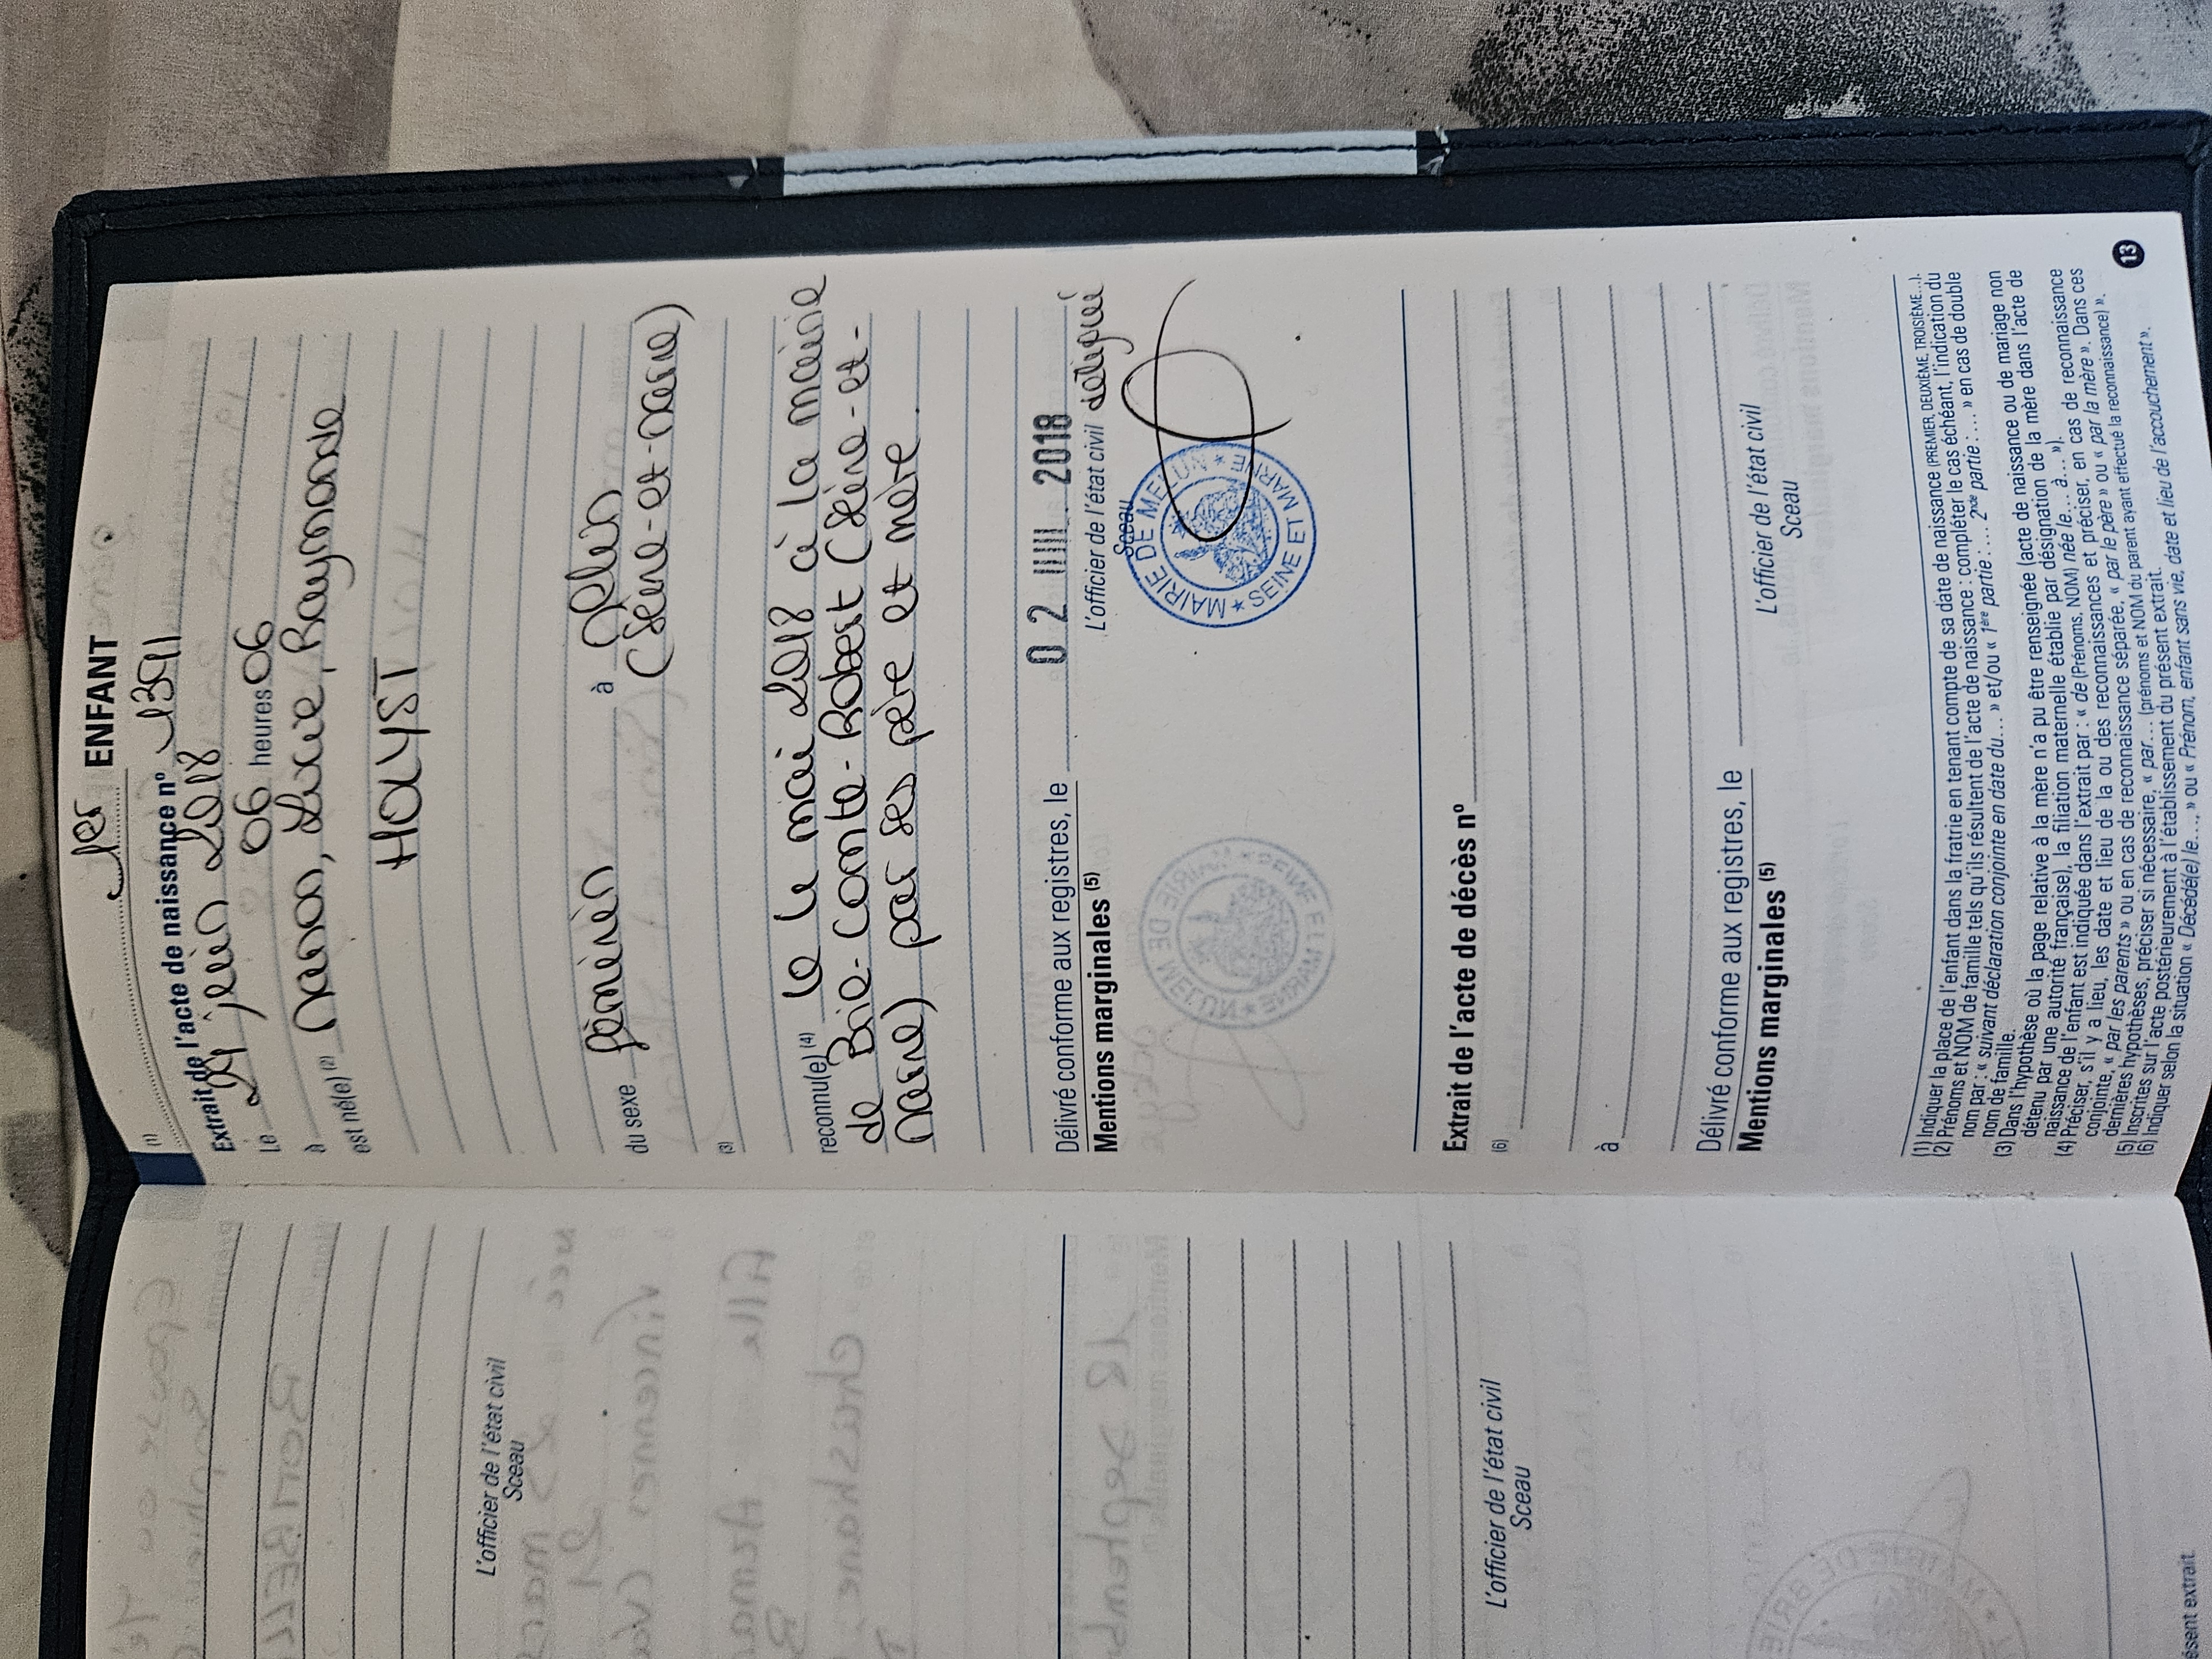 1er ENFANT
(1)
Extrait de l'acte de naissance n° 1391
Le 29 juin 2018
à 06 heures 06
est né(e) (2) Manon, Lucie, Raymonde
HOLYST
du sexe féminin à Melun
(Seine-et-Marne)
(3)
reconnu(e) (4) le 12 mai 2018 à la mairie
de Brie-Comte-Robert (Seine-et-
Marne) par ses père et mère.
Délivré conforme aux registres, le 02 JUIL. 2018
Mentions marginales (5)
L'officier de l'état civil délégué
Sceau
MAIRIE DE MELUN ★ SEINE ET MARNE ★
Extrait de l'acte de décès n°
(6)
à
Délivré conforme aux registres, le
Mentions marginales (5)
L'officier de l'état civil
Sceau
(1) Indiquer la place de l'enfant dans la fratrie en tenant compte de sa date de naissance (PREMIER, DEUXIÈME, TROISIÈME...).
(2) Prénoms et NOM de famille tels qu'ils résultent de l'acte de naissance : compléter le cas échéant, l'indication du
nom par : « suivant déclaration conjointe en date du... » et/ou « 1ère partie :.... 2nde partie :.... » en cas de double
nom de famille.
(3) Dans l'hypothèse où la page relative à la mère n'a pu être renseignée (acte de naissance ou de mariage non
détenu par une autorité française), la filiation maternelle établie par désignation de la mère dans l'acte de
naissance de l'enfant est indiquée dans l'extrait par : « de (Prénoms, NOM) née le... à... »).
(4) Préciser, s'il y a lieu, les date et lieu de la ou des reconnaissances et préciser, en cas de reconnaissance
conjointe, « par les parents » ou en cas de reconnaissance séparée, « par le père » ou « par la mère ». Dans ces
dernières hypothèses, préciser si nécessaire, « par... (prénoms et NOM du parent ayant effectué la reconnaissance) ».
(5) Inscrites sur l'acte postérieurement à l'établissement du présent extrait.
(6) Indiquer selon la situation « Décédé(e) le..., » ou « Prénom, enfant sans vie, date et lieu de l'accouchement ».
13
L'officier de l'état civil
Sceau
L'officier de l'état civil
Sceau
ésent extrait.